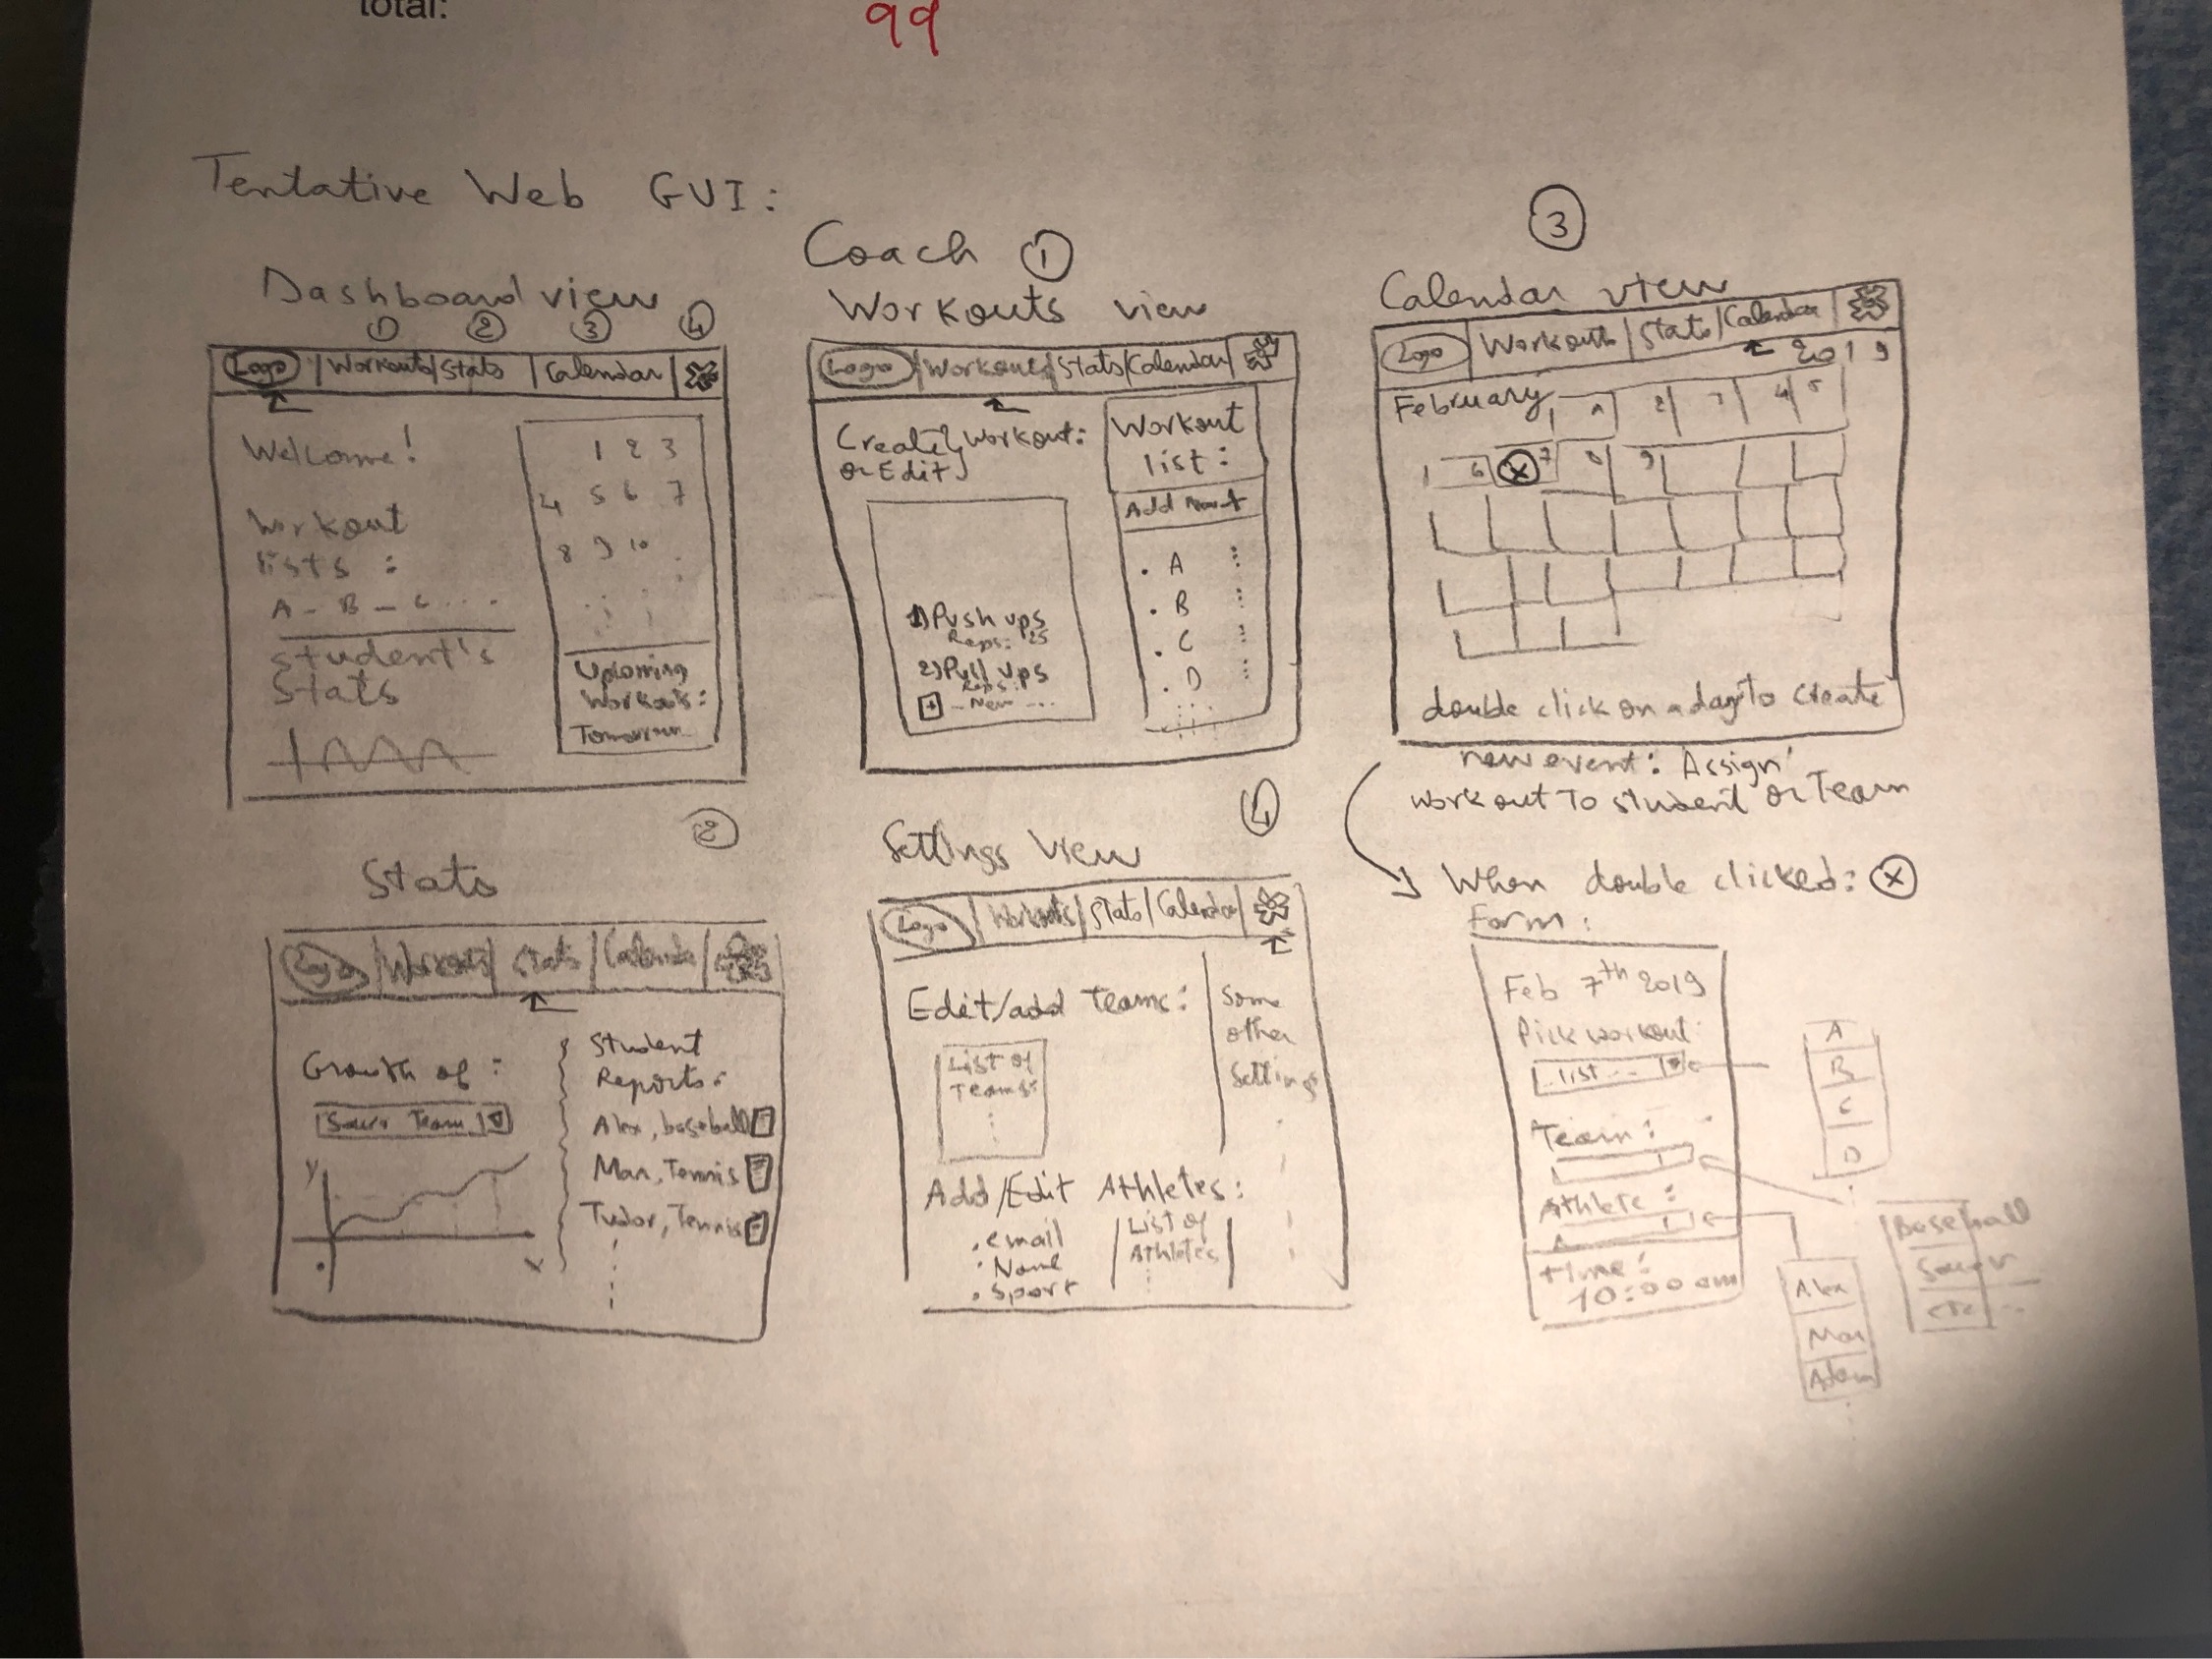 total:
99
Tentative Web GUI:
Coach ①
③
Dashboard view
① ② ③ ④
Logo Workouts Stats Calendar
Welcome!
Workout
lists :
A - B - C ....
Student's
Stats
1 2 3
4 5 6 7
8 9 10
Upcoming
Workouts:
Tomorrow
Workouts view
Logo Workouts Stats Calendar
Create Workout:
or Edit
1) Push ups
Reps: 25
2) Pull ups
Reps:
+ - New ...
Workout
list :
Add New +
. A ...
. B ...
. C ...
. D ...
Calendar view
Logo Workouts Stats Calendar
2019
February
1 2 3 4 5
6 X 7 8 9
double click on a day to create
new event: Assign
workout to student or Team
When double clicked: X
Form:
Feb 7th 2019
Pick workout
list...
Team:
Athlete:
time:
10:00 am
A
B
C
D
Baseball
etc...
Alex
Max
Adam
②
Stats
Logo Workouts Stats Calendar
Growth of :
Team
y
x
Student
Reports:
Alex, baseball
Max, Tennis
Tudor, Tennis
④
Settings View
Logo Workouts Stats Calendar
Edit/add Teams:
List of
Teams:
Some
other
Settings
Add/Edit Athletes:
. email
. Name
. Sport
List of
Athletes